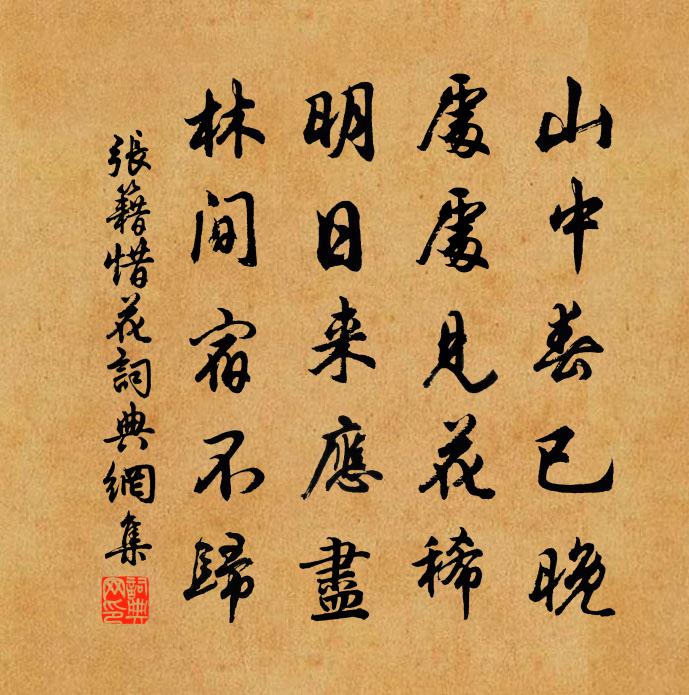 山中春已晚
處處見花稀
明日来應盡
林間宿不歸
張籍惜花詞典網集
詞典网印